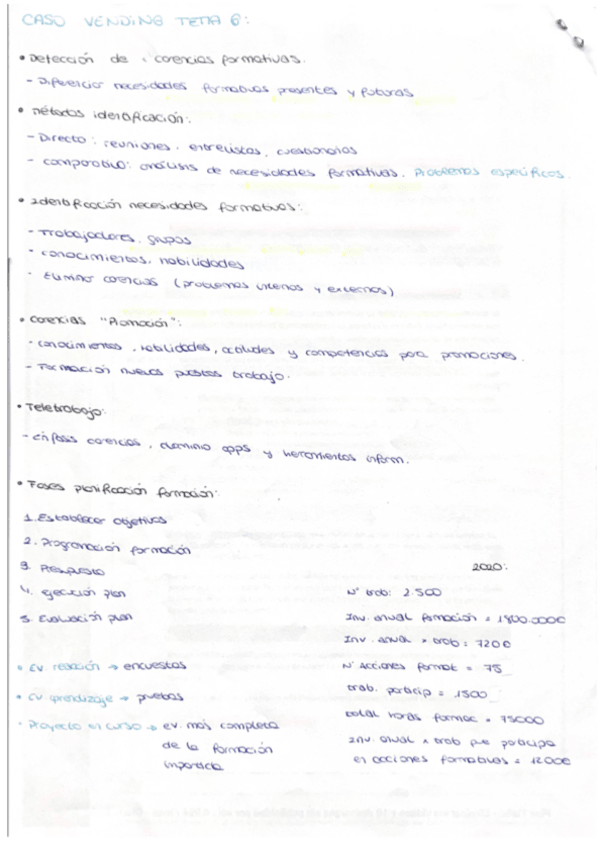 CASO VENDING TEMA 6:
• Detección de carencias formativas.
- Diferenciar necesidades formativas presentes y futuras
• Métodos identificación:
- Directo: reuniones, entrevistas, cuestionarios
- comparativo: análisis de necesidades formativas. Problemas específicos.
• Identificación necesidades formativas:
- Trabajadores, grupos
- conocimientos, habilidades
- Eliminar carencias (problemas internos y externos)
• carencias "Promoción":
- conocimientos, habilidades, actitudes y competencias para promociones.
- Formación nuevos puestos trabajo.
• Teletrabajo:
- énfasis carencias, dominio apps y herramientas inform.
• Fases planificación formación:
1. Establecer objetivos
2. Programación formación
3. Presupuesto
4. ejecución plan
5. Evaluación plan
• Ev. reacción → encuestas
• Ev aprendizaje → pruebas
• Proyecto en curso → ev. más completa
de la formación
impartida
2020:
Nº trab: 2.500
Inv. anual formación = 1800.000€
Inv. anual x trab = 720€
Nº Acciones format = 75
trab. particip = 1500
total horas formac = 75000
Inv. anual x trab que participa
en acciones formativas = 1200€